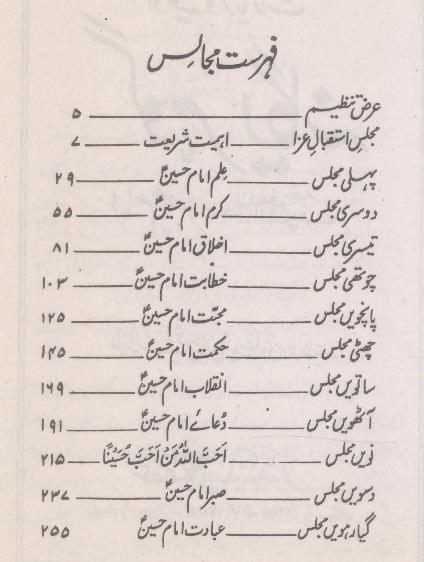 فہرست مجالس
عرض تنظیم ۵
مجلسِ استقبالِ عزا اہمیت شریعت ۷
پہلی مجلس عِلم امام حسینؑ ۲۹
دوسری مجلس کرم امام حسینؑ ۵۵
تیسری مجلس اخلاق امام حسینؑ ۸۱
چوتھی مجلس خطابت امام حسینؑ ۱۰۳
پانچویں مجلس محبّت امام حسینؑ ۱۲۵
چھٹی مجلس حکمت امام حسینؑ ۱۴۵
ساتویں مجلس انقلاب امام حسینؑ ۱۶۹
آٹھویں مجلس دُعائے امام حسینؑ ۱۹۱
نویں مجلس اَحَبَّ اللّٰہُ مَنْ اَحَبَّ حُسَیْنًا ۲۱۵
دسویں مجلس صبر امام حسینؑ ۲۳۷
گیارہویں مجلس عبادت امام حسینؑ ۲۵۵